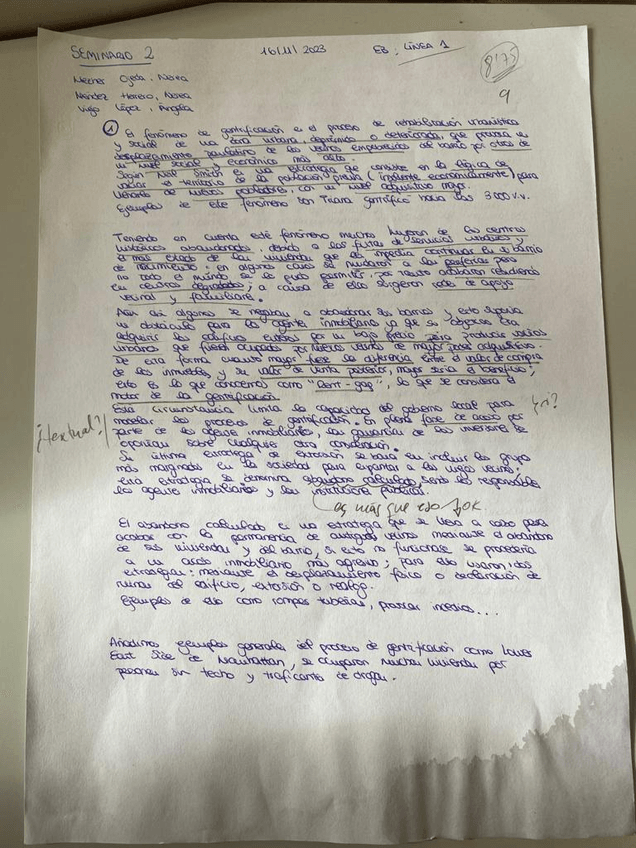 SEMINARIO 2 16/11/2023 EB: LÍNEA 1 8'75
Ojeda, Nerea 9
Méndez Herrero, Nerea
Vigo López, Ángela
① El fenómeno de gentrificación es el proceso de rehabilitación urbanística
y social de una zona urbana, deprimida o deteriorada, que provoca un
desplazamiento paulatino de los vecinos empobrecidos del barrio por otros de
un nivel social y económico más alto.
Según Neil Smith es una estrategia que consiste en la lógica de
vaciar el territorio de la población previa (insolvente económicamente) para
llenarlo de nuevos pobladores con un nivel adquisitivo mayor.
Ejemplos de este fenómeno son Triana gentrificó hasta los 3000 v.v.
Teniendo en cuenta este fenómeno muchos huyeron de los centros
históricos abandonados, debido a las faltas de servicios urbanos y
el mal estado de las viviendas que les impedía continuar en su barrio
de nacimiento; en algunos casos se mudaron a las periferias pero
no todo el mundo se lo pudo permitir, por tanto acabaron residiendo
en centros degradados; a causa de ello surgieron redes de apoyo
vecinal y familiares.
Aún así algunos se negaban a abandonar los barrios y esto suponía
un obstáculo para los agentes inmobiliarios ya que su objetivo era
adquirir los edificios enteros por un bajo precio para producir vacíos
urbanos que fuesen ocupados por nuevos vecinos de mayor nivel adquisitivo.
De esta forma cuanto mayor fuese la diferencia entre el valor de compra
de los inmuebles y su valor de venta posterior, mayor sería el beneficio;
esto es lo que conocemos como "Rent-gap", lo que se considera el
motor de la gentrificación.
Esta circunstancia limita las capacidades del gobierno local para
modelar los procesos de gentrificación. En plena fase de acoso por
¿textual?/ parte de los agentes inmobiliarios, las ganancias de los inversores se
priorizan sobre cualquier otra consideración.
Su última estrategia de extorsión se basa en incluir los grupos
más marginados en la sociedad para espantar a los viejos vecinos;
esta estrategia se denomina abandono calculado, siendo los responsables
los agentes inmobiliarios y las instituciones públicas.
es más que eso OK
El abandono calculado es una estrategia que se lleva a cabo para
acabar con la permanencia de antiguos vecinos mediante el abandono
de sus viviendas y del barrio, si esto no funcionase se procedería
a un acoso inmobiliario más agresivo; para ello usaron dos
estrategias: mediante el desplazamiento físico o declaración de
ruina del edificio, extorsión o realojo.
Ejemplos de ello como romper tuberías, provocar incendios...
Añadimos ejemplos generales del proceso de gentrificación como Lower
East Side de Manhattan, se ocuparon muchas viviendas por
personas sin techo y traficantes de drogas.